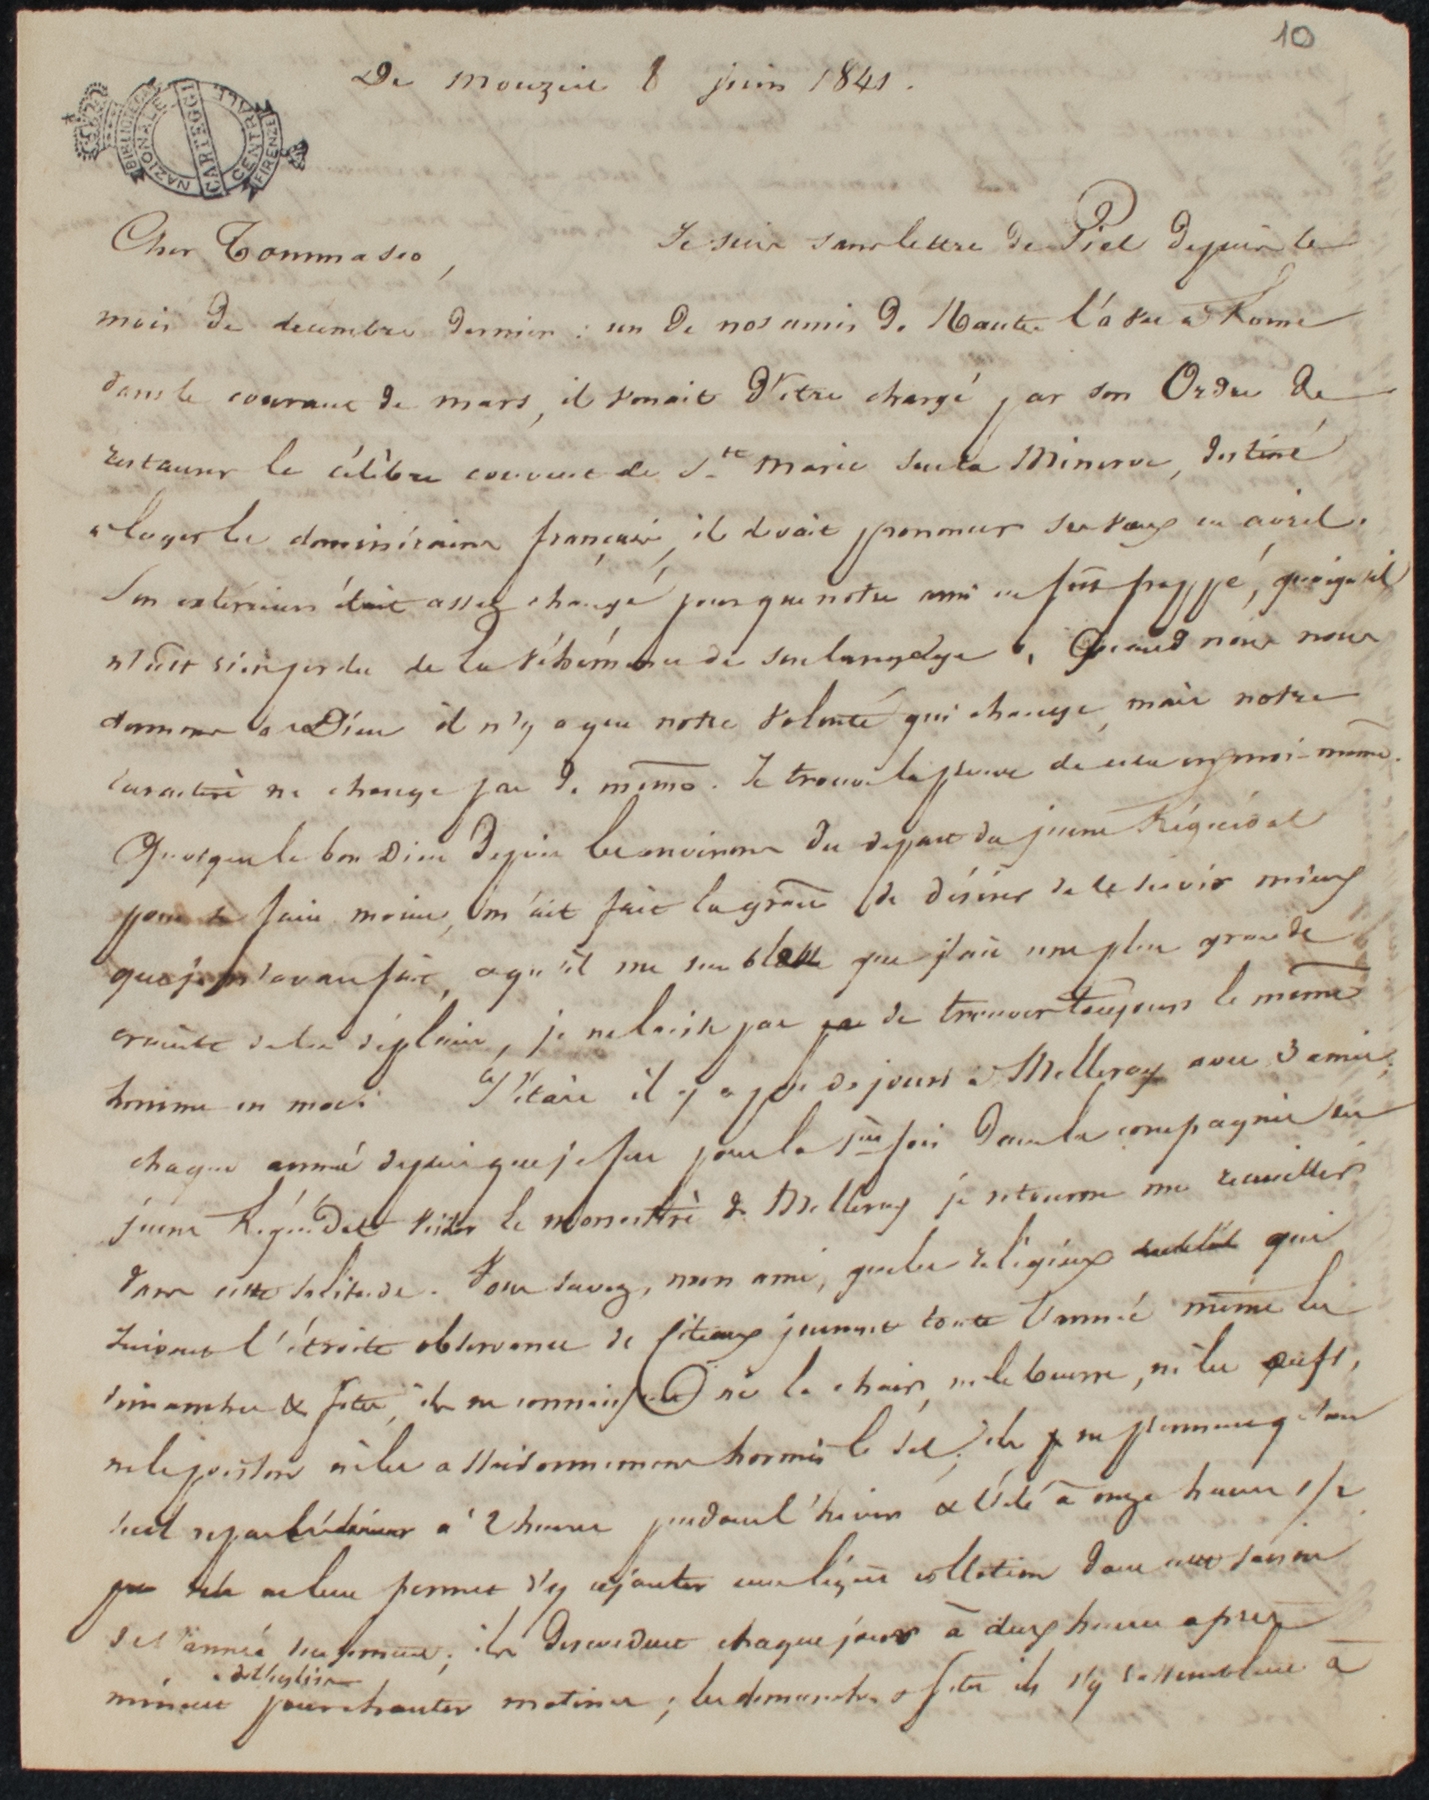 10
De mouzeil 8 juin 1841.
BIBLIOTECA NAZIONALE CENTRALE FIRENZE CARTEGGI
Cher Tommaseo, Je suis sans lettre de Piel depuis le
mois de décembre dernier : un de nos amis de Nantes l'a vu à Rome
dans le courant de mars, il venait d'être chargé par son Ordre de
restaurer le célèbre couvent de Ste Marie sur la Minerve, destiné
à loger les dominicains français, il devait prononcer ses vœux en avril.
Son extérieur était assez changé pour que notre ami en fût frappé, quoiqu'il
n'eût rien perdu de la véhémence de son langage. Quand nous nous
donnons à Dieu il n'y a que notre volonté qui change, mais notre
caractère ne change pas de même. Je trouve la preuve de cela en moi-même.
Quoique le bon Dieu depuis les environs du départ du jeune Réquédat
pour se faire moine, m'ait fait la grâce de désirer de le servir mieux
que je n'avais fait, et qu'il me semble que j'aie une plus grande
crainte de lui déplaire, je ne laisse pas pas de trouver toujours le même
homme en moi. J'étais il y a peu de jours à Melleray avec 3 amis;
chaque année depuis que je fus pour la 1ère fois dans la compagnie du
jeune Réquédat visiter le monastère de Melleray je retourne me recueillir
dans cette solitude. Vous savez, mon ami, que les religieux qui
suivent l'étroite observance de Citeaux jeunent toute l'année même les
dimanches & fêtes, ils ne connaissent ni la chair, ni le beurre, ni les œufs,
ni le poisson ni les assaisonnemens hormis le sel; ils ne prennent qu'un
seul repas à 2 heures pendant l'hiver & l'été à onze heures 1/2
ne leur permet d'y ajouter une légère collation dans cette saison
de l'année seulement; ils descendent chaque jour à deux heures après
à l'église
minuit pour chanter matines; les dimanches & fêtes ils s'y rassemblent à